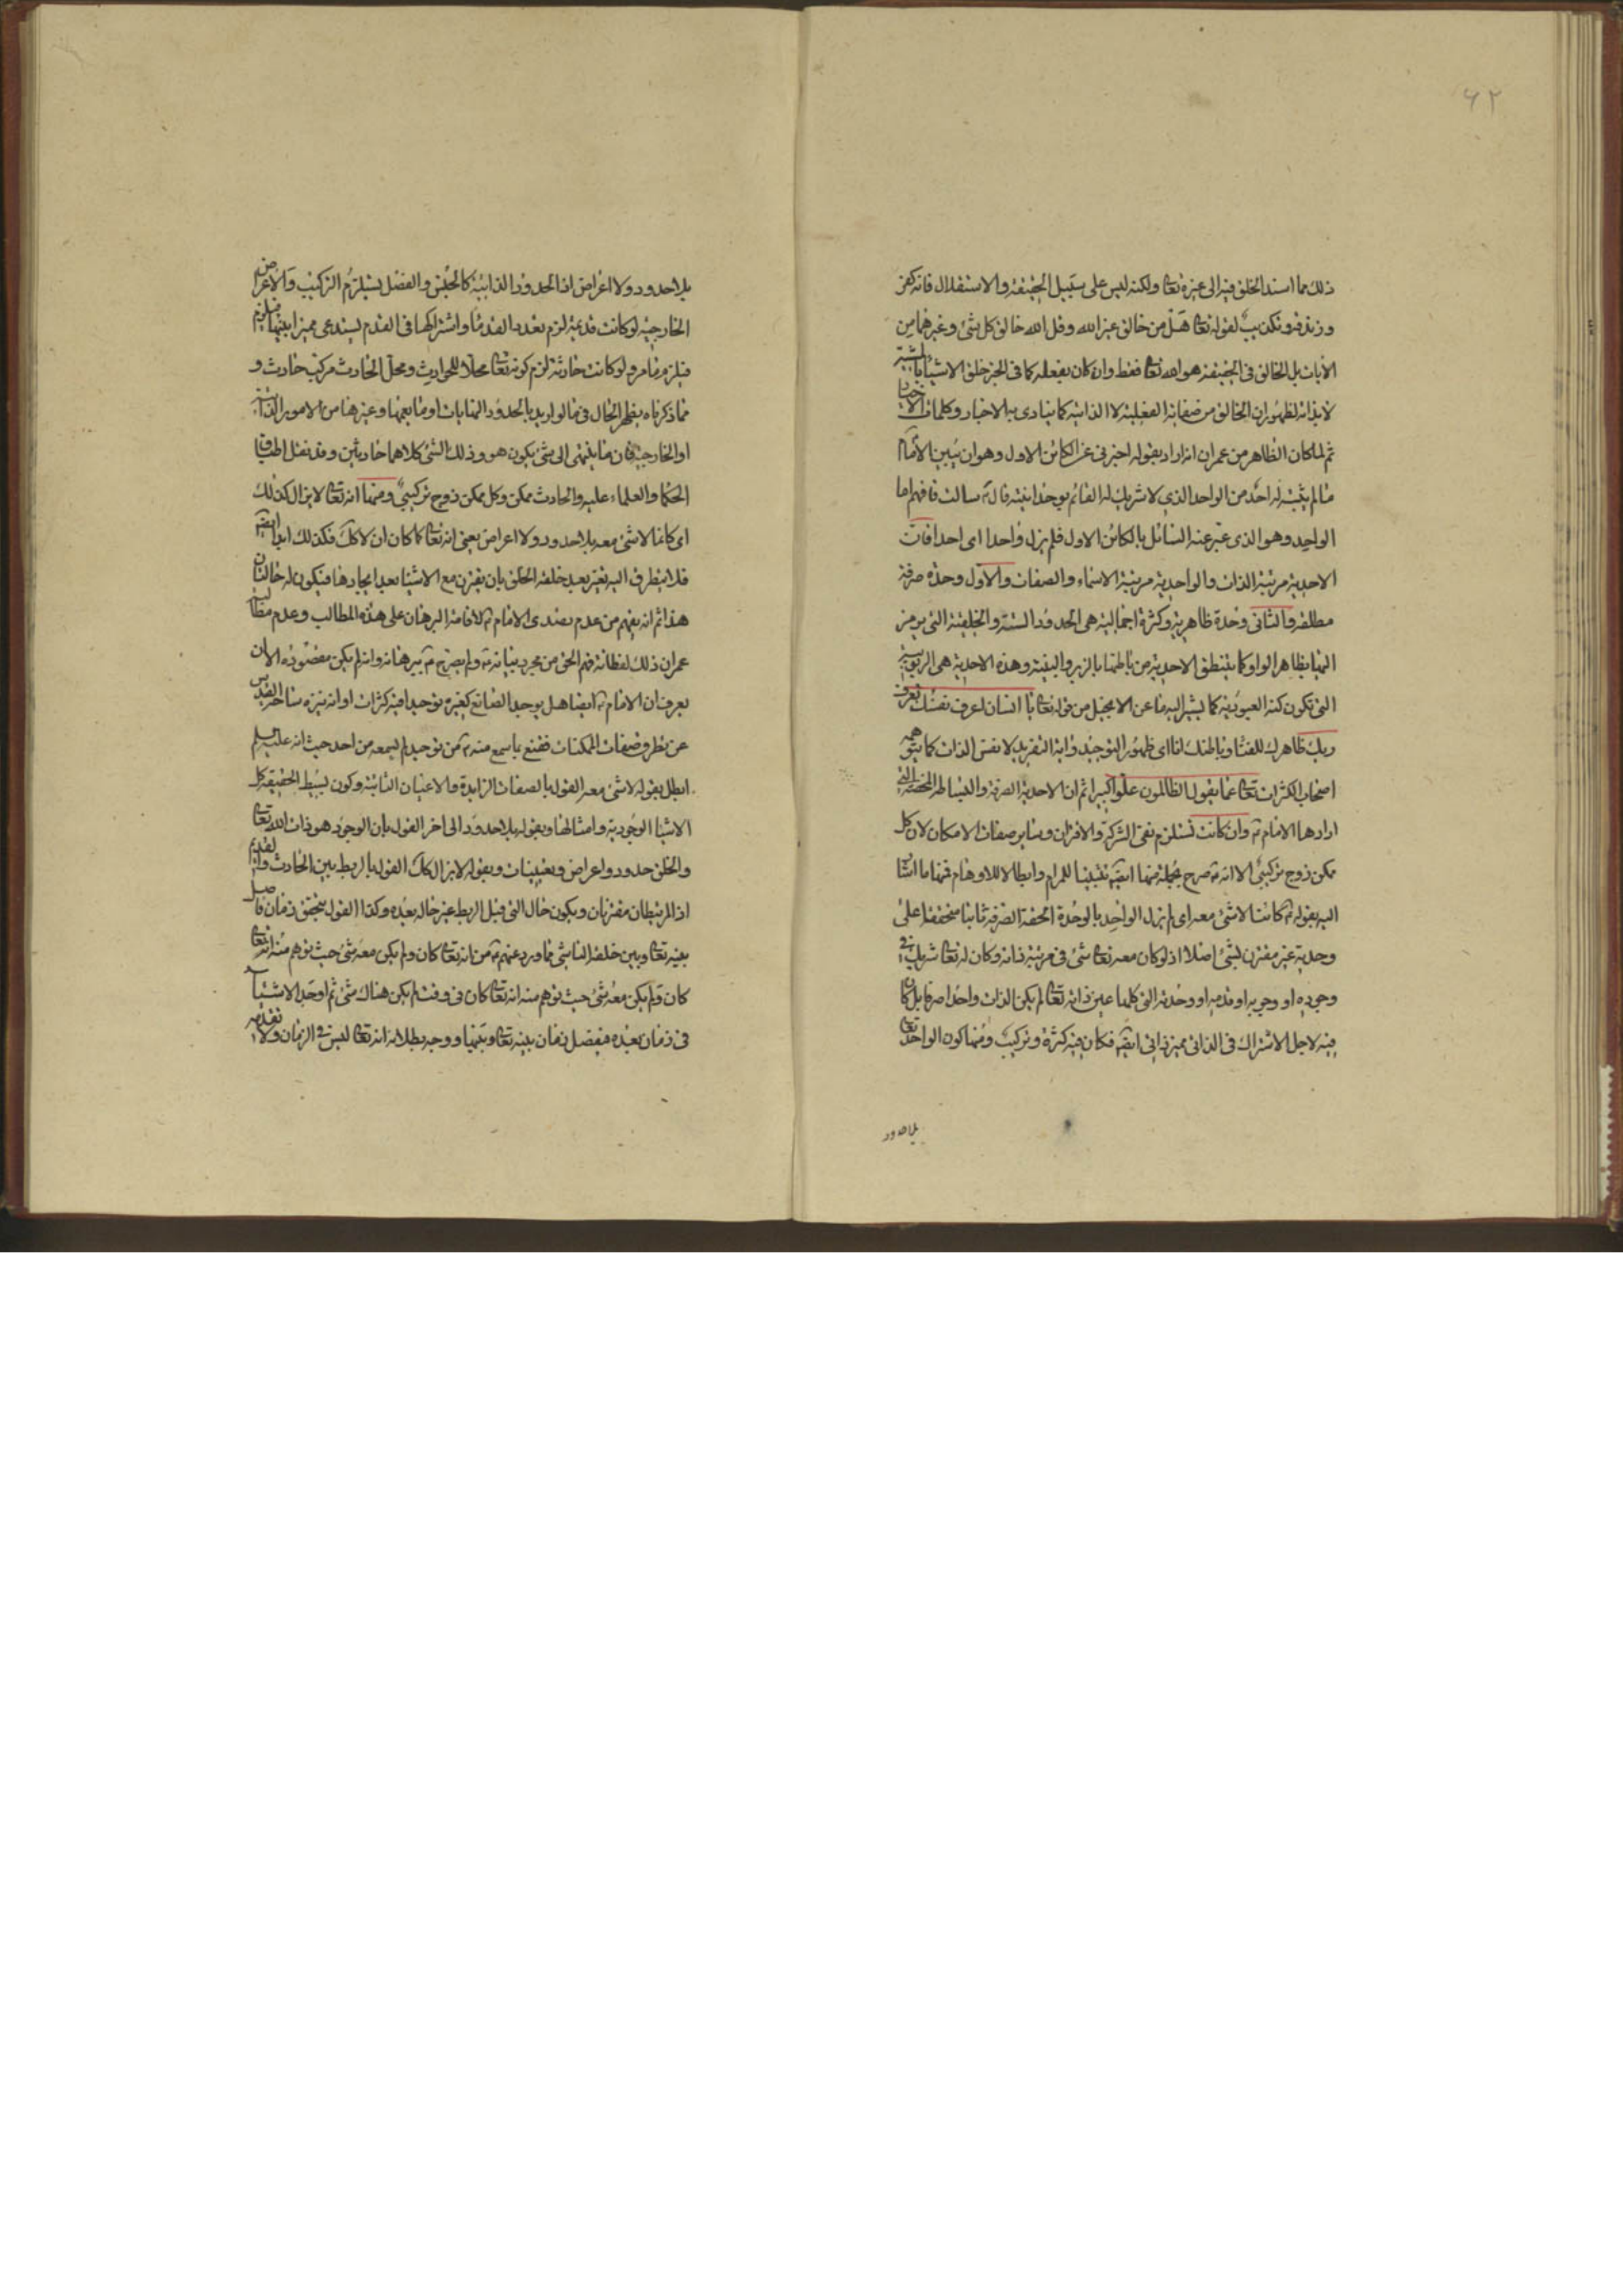 ۶۲
ذلك مما اسند الخلق فيه الى غيره تعالى ولكنه ليس على سبيل الحقيقة والاستقلال فانه كفر
وزندقه وتكذيب لقوله تعالى هل من خالق غير الله وقل الله خالق كل شئ وغيرهما من
الايات بل الخالق فى الحقيقة هو الله تعالى فقط وان كان بفعله كما فى الخبر خلق الاشياء بالمشية
لا بذاته لظهور ان الخالق من صفاته الفعلية لا الذاتية كما ينادى به الاخبار وكلمات
ثم لما كان الظاهر من عمران انه اراد بقوله اخبرنى عن الكائن الاول وهو ان يبين الامام
ما لم يثبته له احد من الواحد الذى لا شريك له القائم بوحدانيته قال ع سالت فافهم اما
الواحد وهو الذى عبر عنه السائل بالكائن الاول فلم يزل واحدا اى احدا فان
الاحدية مرتبة الذات والواحدية مرتبة الاسماء والصفات والاول وحدة صرفة
مطلقة والثانى وحدة ظاهرية وكثرة اجمالية هى الحدود الستة والخلقية التى يرمز
اليها بظاهر الواو كما ينطق الاحدية من باطنها بالزبر والبينة وهذه الاحدية هى الربوبية
التى تكون كنه العبودية كما يشير اليه ما عن الانجيل من قوله تعالى يا انسان اعرف نفسك تعرف
ربك ظاهرك للفناء وباطنك انا اى ظهور التوحيد واية التفريد لا نفس الذات كما يتوهمه
اصحاب الكثرات تعالى عما يقول الظالمون علوا كبيرا ثم ان الاحدية الصرفة والبساطة المحضة التى
ارادها الامام ع وان كانت تستلزم نفى الشركة والاقتران وساير صفات الامكان لان كل
ممكن زوج تركيبى الا انه ع صرح بجملة منها ايضا تثبيتا للمرام وابطالا للاوهام فمنها ما اشار
اليه بقوله ع كائنا لا شئ معه اى لم يزل الواحد بالوحدة الحقة الصرفة ثابتا متحققا على
وحدته غير مقترن بشئ اصلا اذ لو كان معه تعالى شئ فى مرتبة ذاته وكان له تعالى شريك فى
وجوده او وجوبه او قدمه او وحدته التى كلها عين ذاته تعالى لم يكن الذات واحدا صرفا بل كان
فيه لاجل الاشتراك فى الذاتى مميز ذاتى ايضا فكان فيه كثرة وتركيب ومنها كون الواحد تعالى
بلا حدود
بلا حدود ولا اعراض اذ الحدود الذاتية كالجنس والفصل يستلزم التركيب والاعراض
الخارجية لو كانت قديمة لزم تعدد القدماء واشتراكها فى القدم يستدعى مميزا بينها
فيلزم ما مر ولو كانت حادثة لزم كونه تعالى محلا للحوادث ومحل الحادث مركب حادث و
مما ذكرناه يظهر الحال فى ما لو اريد بالحدود النهايات او ما يعمها وغيرها من الامور الذاتية
او الخارجية فان ما ينتهى الى شئ يكون هو وذلك الشئ كلاهما حادثين وقد نقل اطباق
الحكماء والعلماء عليه والحادث ممكن وكل ممكن زوج تركيبى ومنها انه تعالى لا يزال كذلك
اى كائنا لا شئ معه بلا حدود ولا اعراض يعنى انه تعالى كما كان ان لا كك فكذلك ابدا ايضا
فلا يتطرق اليه تغير بعد خلقه الخلق بان يقترن مع الاشياء بعد ايجادها فيكون له حالتان
هذا ثم انه يفهم من عدم تصدى الامام ع لاقامة البرهان على هذه المطالب وعدم مطالبة
عمران ذلك لفطانة فهم الحق من مجرد بيانه ع ولم يصرح ع ببرهانه وانه لم يكن مقصوده الا ان
يعرف ان الامام ع ايضا هل يوحد الصانع كغيره توحيدا فيه كثرات او انه ينزه ساحة القدس
عن تطرق صفات الممكنات فقنع بما سمع منه ع من توحيد لم يسمعه من احد حيث انه عليه السلم
ابطل بقوله لا شئ معه القول بالصفات الزايدة والاعيان الثابتة وكون بسيط الحقيقة كل
الاشياء الوجودية وامثالها وبقوله بلا حدود الى اخر القول بان الوجود هو ذات الله تعالى
والخلق حدود واعراض وتعينات وبقوله لا يزال كك القول بالربط بين الحادث والقديم
اذ المرتبطان مقترنان ويكون حال الشئ قبل الربط غير حاله بعده وكذا القول بتحقق زمان فاصل
بينه تعالى وبين خلقه الناشى مما ورد عنهم ع من انه تعالى كان ولم يكن معه شئ حيث توهم منه انه تعالى
كان ولم يكن معه شئ حيث توهم منه انه تعالى كان فى وقت لم يكن هناك شئ ثم اوجد الاشياء
فى زمان بعده منفصل زمان بينه تعالى وبينها ووجه بطلانه انه تعالى ليس فى الزمان ولا